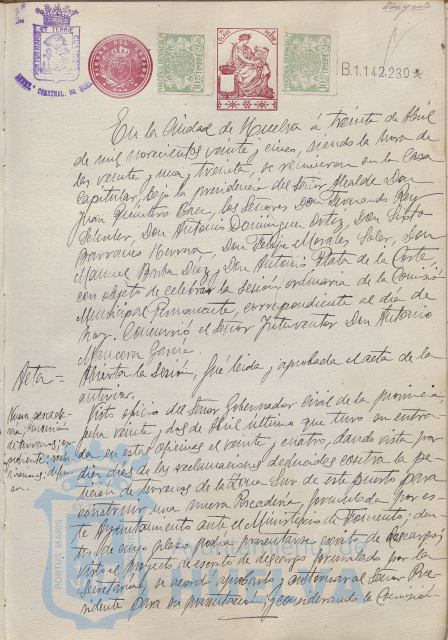 B.1.142.230*
En la Ciudad de Huelva á treinta de Abril
de mil novecientos veinte y cinco, siendo la hora de
las veinte y una y treinta, se reunieron en la Casa
Capitular, bajo la presidencia del Señor Alcalde Don
Juan Quintero Baez, los Señores Don Fernando Rey
Don Antonio Domínguez Ortiz, Don Sixto
Barranco Herrera, Don Felipe Morales Soler, Don
Manuel Barba Díaz, y Don Antonio Plata de la Corte,
con objeto de celebrar la sesión ordinaria de la Comisión
Municipal Permanente, correspondiente al día de
hoy. Concurrió el Señor Interventor Don Antonio
Mancera García
Acta=
Abierta la sesión, fué leida y aprobada el acta de la
anterior.
Nueva pescade-
ría;
de terrenos;
Visto oficio del Señor Gobernador Civil de la provincia,
fecha veinte y dos de Abril último que tuvo en entra
da en estas oficinas el veinte y cuatro, dando vista por
diez días de las reclamaciones deducidas contra la pe-
tición de terrenos de la Zona Sur de este puerto para
construir una nueva Pescadería formulada por es-
te Ayuntamiento ante el Ministerio de Fomento; den-
tro de cuyo plazo podrá presentarse escrito de descargos;
visto el proyecto de escrito de descargo formulado por la
Secretaría, se acordó aprobarlo y autorizar al Señor Pre-
sidente para su presentación; y considerando la Comisión
PORTUS MARIS
Ayuntamiento de